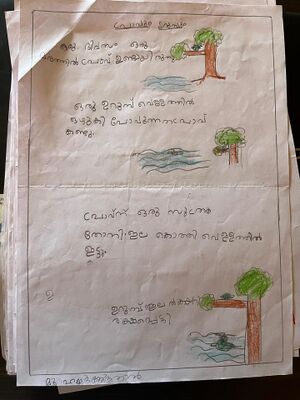 ഡോവും ഉറുമ്പും
ഒരു ദിവസം ഒരു
മരത്തിൽ ഡോവ് ഉണ്ടായിരുന്നു
ഒരു ഉറുമ്പ് വെള്ളത്തിൽ
ഒഴുകി പോവുന്നത് ഡോവ്
കണ്ടു.
ഡോവ്ന് ഒരു സൂത്രം
തോന്നി ഇല കൊത്തി വെള്ളത്തിൽ
ഇട്ടു.
ഉറുമ്പ് ഇലയിൽ കയറി
രക്ഷപ്പെട്ടു